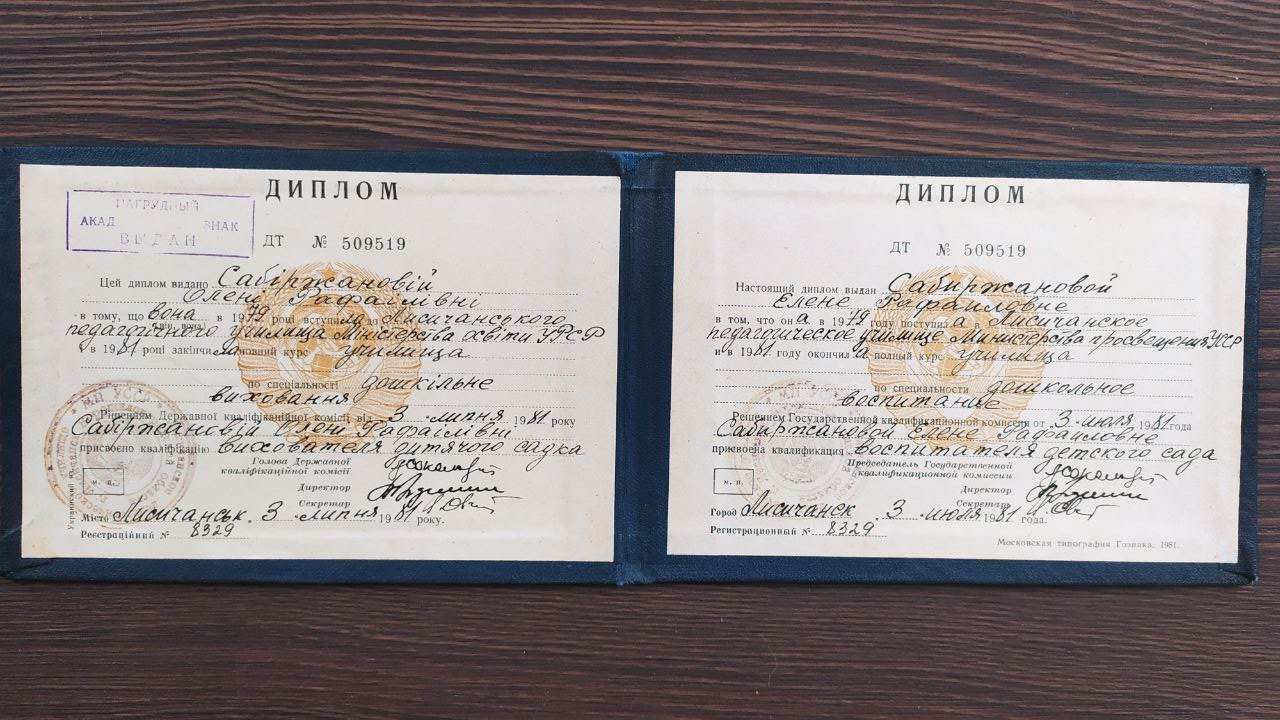 ДИПЛОМ
НАГРУДНЫЙ
АКАД ЗНАК
ВЫДАН
ДТ № 509519
Цей диплом видано Сабіржановій
Олені Рафаілівні
в тому, що вона в 1979 році вступила до Лисичанського
педагогічного училища Міністерства освіти УРСР
і в 1981 році закінчила повний курс училища
по спеціальності дошкільне
виховання
Рішенням Державної кваліфікаційної комісії від 3 липня 1981 року
Сабіржановій Олені Рафаілівні
присвоєно кваліфікацію вихователя дитячого садка
Голова Державної
кваліфікаційної комісії
Директор
м. п.
Секретар
Місто Лисичанськ 3 липня 1981 року.
Реєстраційний № 8329
ДИПЛОМ
ДТ № 509519
Настоящий диплом выдан Сабиржановой
Елене Рафаиловне
в том, что она в 1979 году поступила в Лисичанское
педагогическое училище Министерства просвещения УССР
и в 1981 году окончила полный курс училища
по специальности дошкольное
воспитание
Решением Государственной квалификационной комиссии от 3 июля 1981 года
Сабиржановой Елене Рафаиловне
присвоена квалификация воспитателя детского сада
Председатель Государственной
квалификационной комиссии
Директор
м. п.
Секретарь
Город Лисичанск 3 июля 1981 года.
Регистрационный № 8329
Московская типография Гознака. 1981.